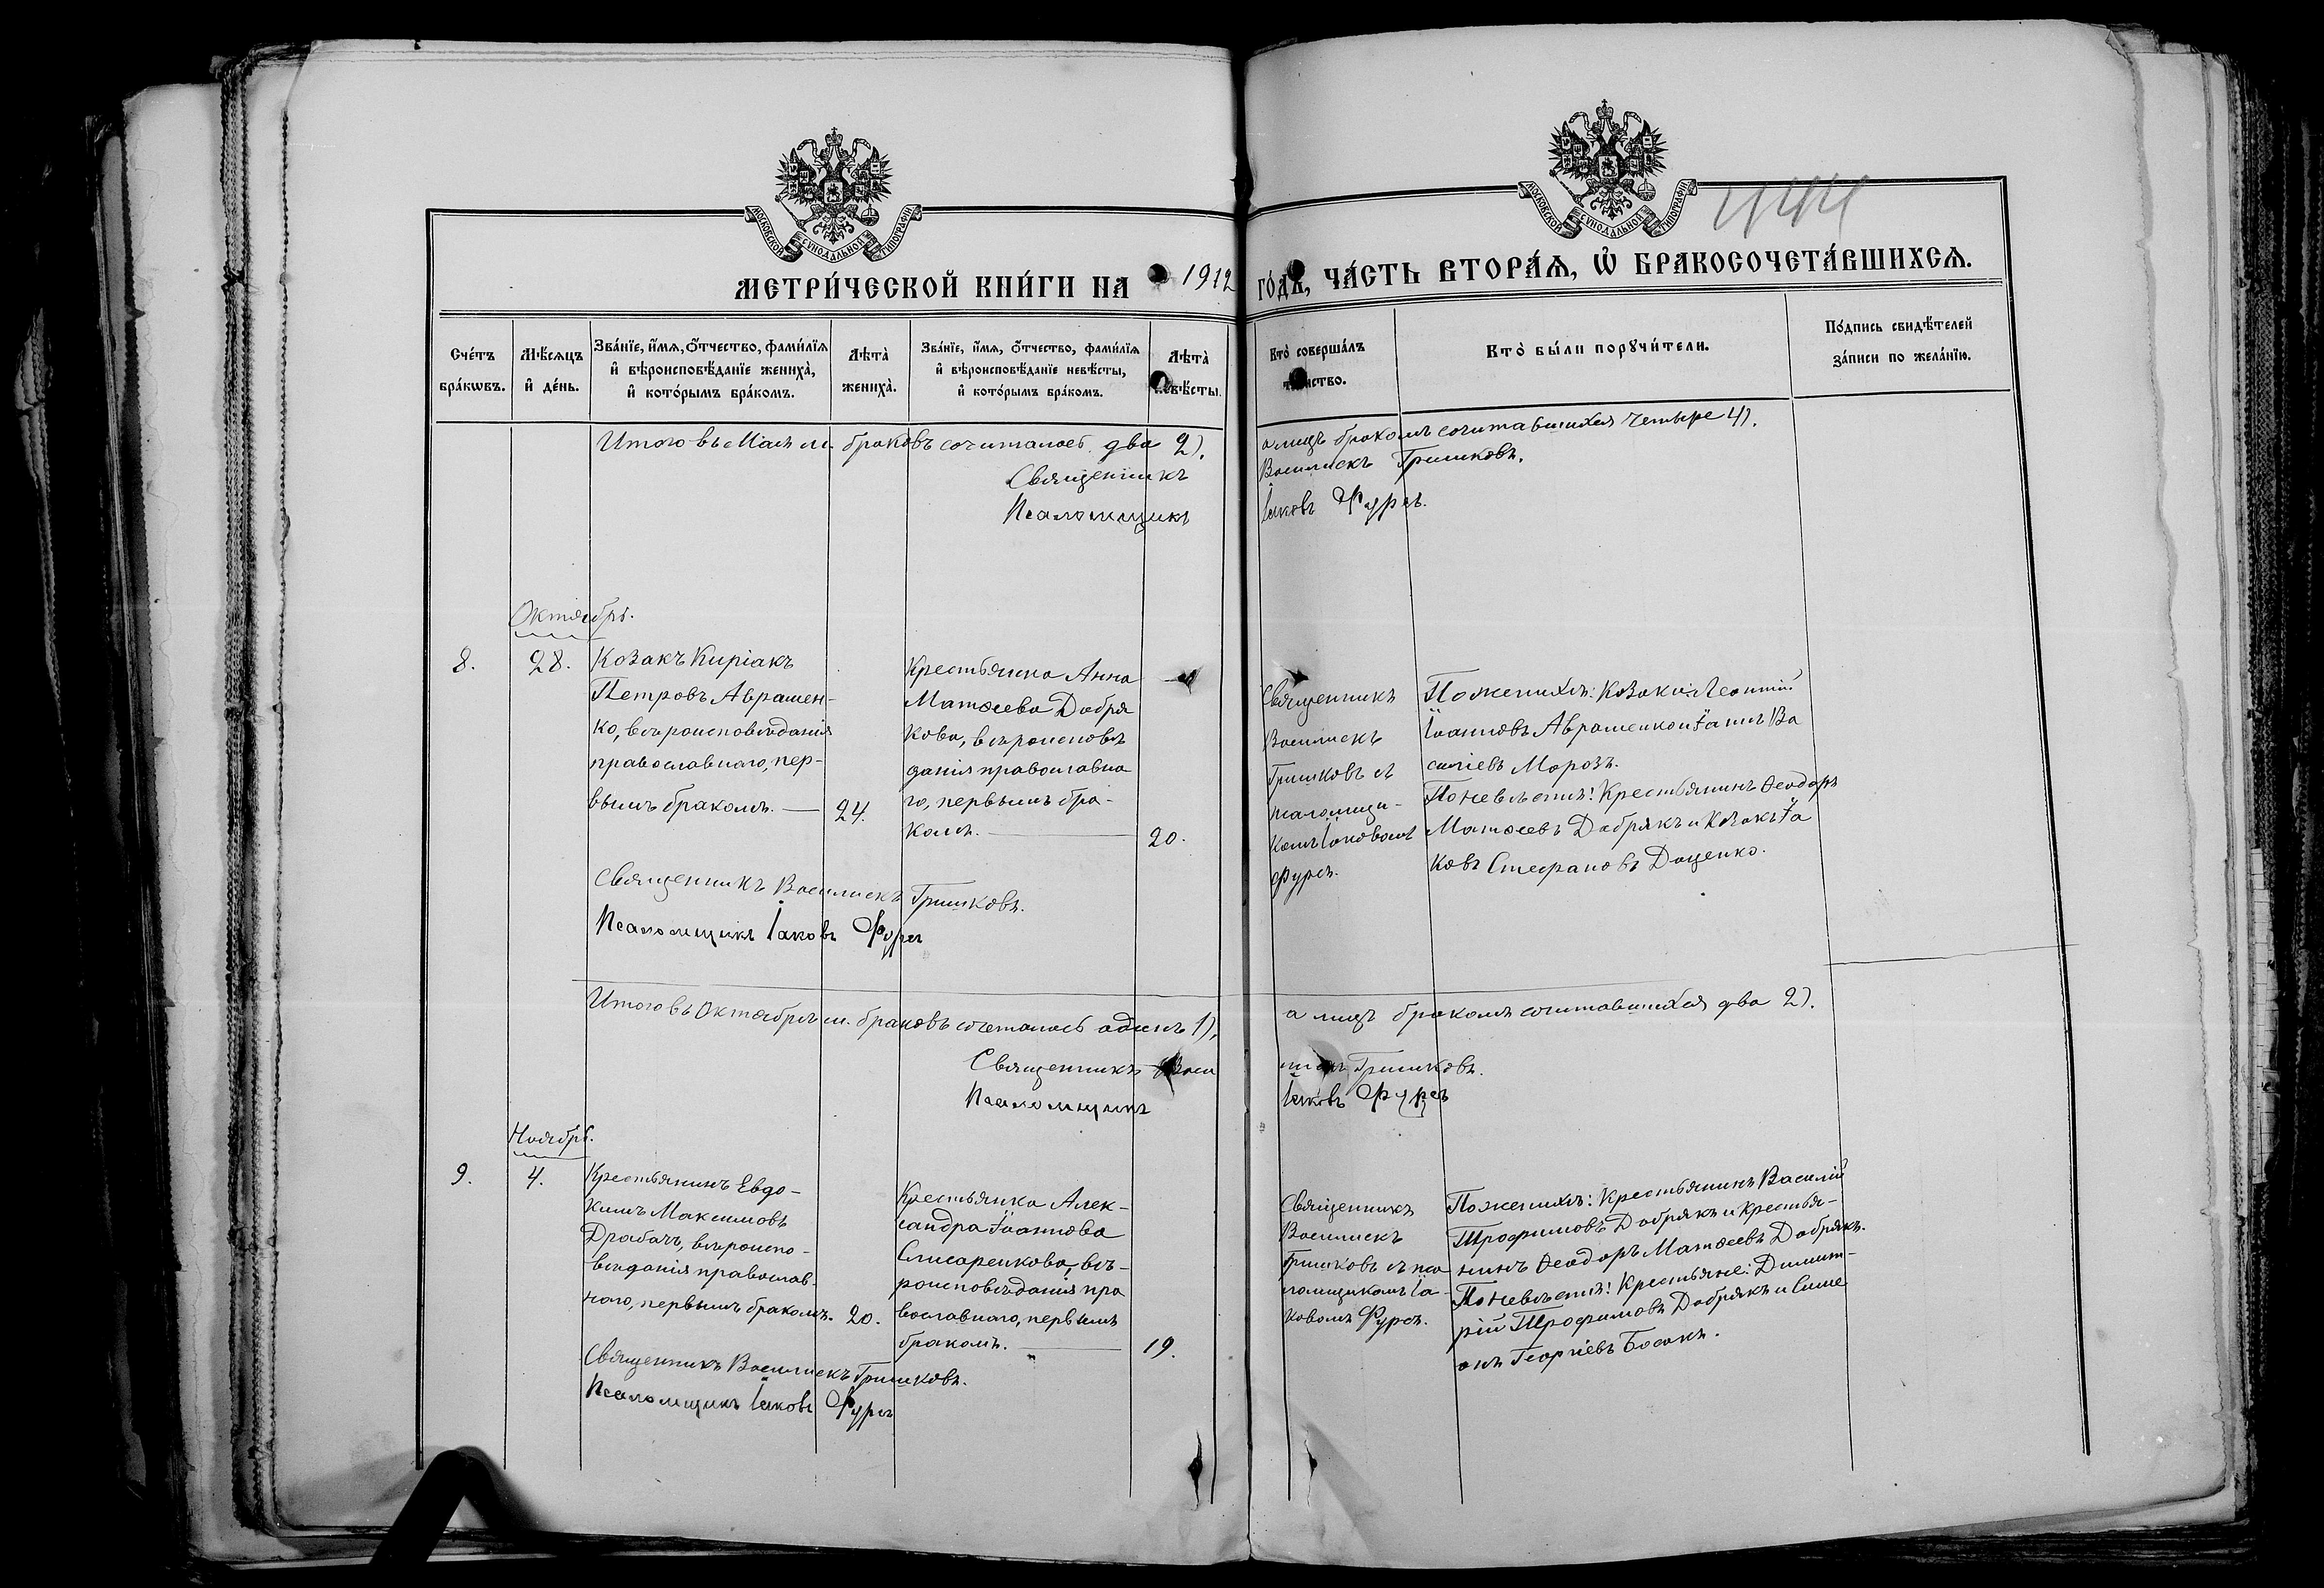 МОСКОВСКОЙ СѴНОДАЛЬНОЙ ТИПОГРАФІИ
МОСКОВСКОЙ СѴНОДАЛЬНОЙ ТИПОГРАФІИ
МЕТРИ́ЧЕСКОЙ КНИ́ГИ НА 1912 ГО́ДЪ, ЧА́СТЬ ВТОРА́Ѧ, Ѡ҆ БРАКОСОЧЕТА́ВШИХСѦ.
Сче́тъ бра́кѡвъ.
Мѣ́сѧцъ и҆ де́нь.
Зва́нїе, и҆́мѧ, ѻ҆́тчество, фами́лїѧ и҆ вѣроисповѣ́данїе жениха̀, и҆ кото́рымъ бра́комъ.
Лѣ́та̀ жениха̀.
Зва́нїе, и҆́мѧ, ѻ҆́тчество, фами́лїѧ и҆ вѣроисповѣ́данїе невѣ́сты, и҆ кото́рымъ бра́комъ.
Лѣ́та̀ невѣ́сты.
Кто̀ соверша́лъ таинство.
Кто̀ бы́ли порꙋчи́тели.
По́дпись свидѣ́телей за́писи по жела́нїю.
Итого въ Маѣ м. браковъ сочиталось два 2), а лицъ бракомъ сочитавшихся четыре 4).
Священникъ Василискъ Гришковъ.
Псаломщикъ Іаковъ Фурсъ.
Октябрь.
8.
28.
Козакъ Киріакъ
Петровъ Аврамен-
ко, вѣроисповѣданія
православнаго, пер-
вымъ бракомъ. —
24.
Крестьянка Анна
Матѳеева Добря
кова, вѣроисповѣ
данія православна
го, первымъ бра-
комъ. —
20.
Священникъ
Василискъ
Гришковъ съ
псаломщи-
комъ Іаковомъ
Фурсъ.
По женихѣ: Козаки: Леонтій
Іоанновъ Авраменко и Іаннъ Ва
силіевъ Морозъ.
По невѣстѣ: Крестьянинъ Ѳеодоръ
Матѳеевъ Добрякъ и Козакъ Іа
ковъ Стефановъ Доценко.
Священникъ Василискъ Гришковъ.
Псаломщикъ Іаковъ Фурсъ
Итого въ Октябрѣ м. браковъ сочеталось одинъ 1), а лицъ бракомъ сочитавшихся два 2).
Священникъ Васи Гришковъ.
Псаломщикъ Іаковъ Фурсъ
Ноябрь.
9.
4.
Крестьянинъ Евдо-
кимъ Максимовъ
Драбачъ, вѣроиспо-
вѣданія православ-
наго, первымъ бракомъ.
20.
Крестьянка Алек-
сандра Іоаннова
Слисаренкова, вѣ-
роисповѣданія пра
вославнаго, первымъ
бракомъ. —
19.
Священникъ
Василискъ
Гришковъ съ пса
ломщикомъ Іа-
ковомъ Фурсъ.
По женихѣ: Крестьянинъ Василій
Трофимовъ Добрякъ и крестья-
нинъ Ѳеодоръ Матѳеевъ Добрякъ.
По невѣстѣ: Крестьяне: Димит-
рій Трофимовъ Добрякъ и Симе
онъ Георгіевъ Босакъ.
Священникъ Василискъ Гришковъ.
Псаломщикъ Іаковъ Фурсъ